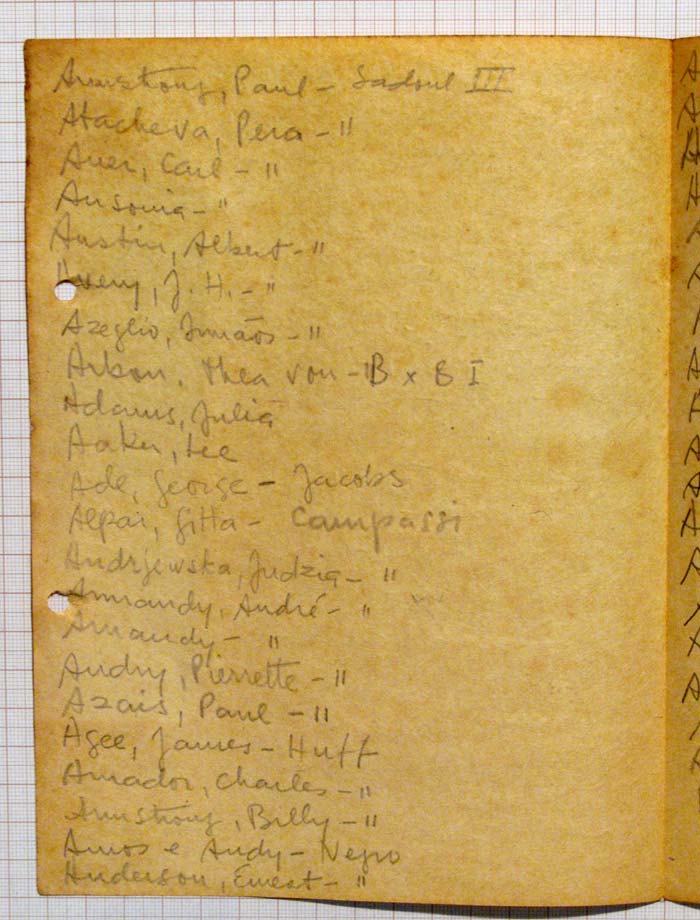 Armstrong, Paul - Sadoul III
Atacheva, Pera - "
Auer, Carl - "
Ausonia - "
Austin, Albert - "
Avery, J. H. - "
Azeglio, Irmãos - "
Arbon, Thea von - B x B I
Adams, Julia
Aaker, Lee
Ade, George - Jacobs
Alpar, Gitta - Campassi
Andrjewska, Judzia - "
Armandy, André - "
Amandy - "
Andry, Pierrette - "
Azais, Paul - "
Agee, James - Huff
Amador, Charles - "
Armstrong, Billy - "
Amos e Andy - Negro
Anderson, Ernest - "